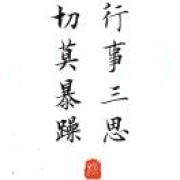 行事三思
切莫暴躁